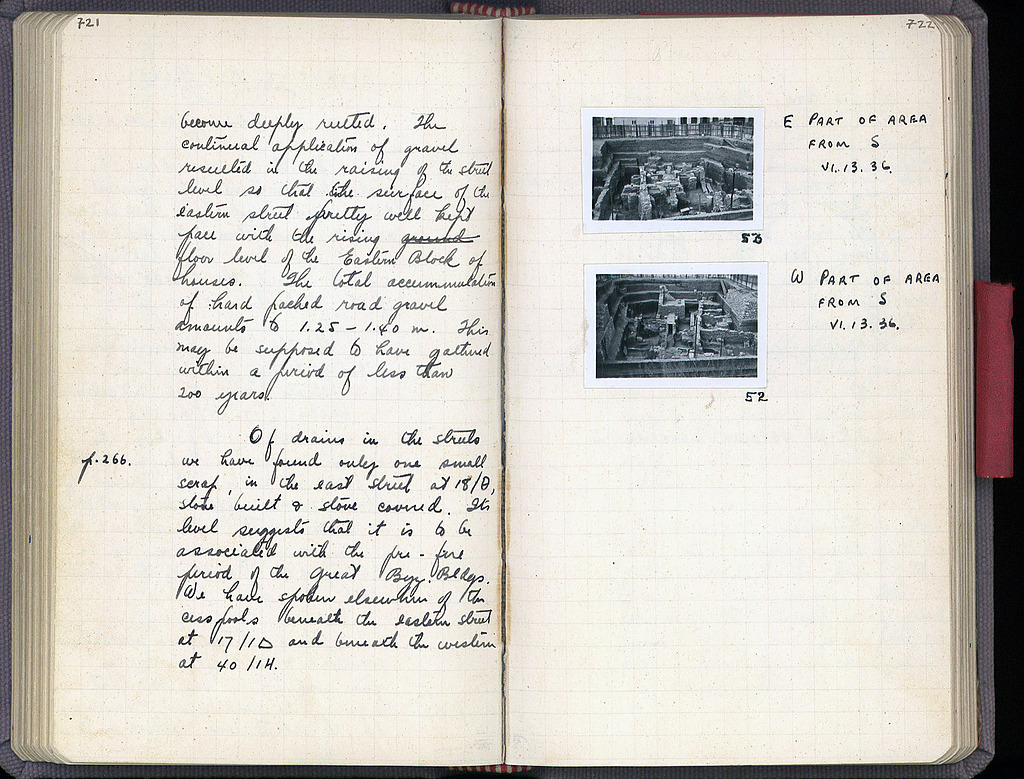 721
become deeply rutted. The
continual application of gravel
resulted in the raising of the street
level so that the surface of the
eastern street pretty well kept
pace with the rising ground
floor level of the Eastern Block of
houses. The total accummulation
of hard packed road gravel
amounts to 1.25 - 1.40 m. This
may be supposed to have gathered
within a period of less than
200 years.
Of drains in the streets
p. 266. we have found only one small
scrap, in the east street at 18/Θ,
stone built & stone covered. Its
level suggests that it is to be
associated with the pre-fire
period of the Great Byz. Bldgs.
We have spoken elsewhere of the
cesspools beneath the eastern street
at 17/ΙΔ and beneath the western
at 40/ΙΗ.
722
E PART OF AREA
FROM S
VI.13.36.
53
W PART OF AREA
FROM S
VI.13.36.
52